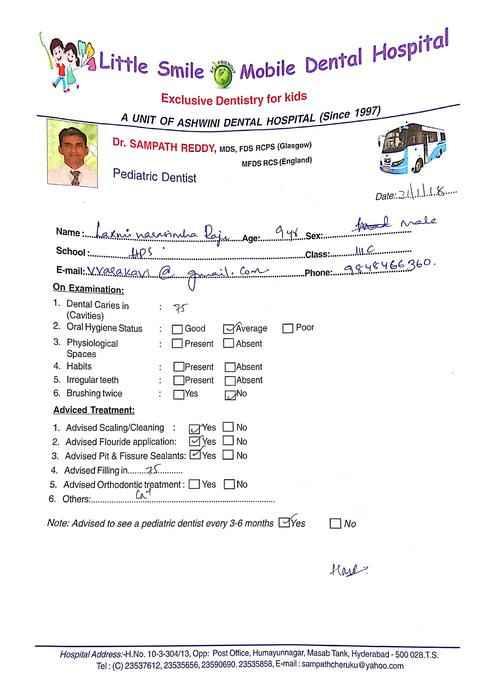 Little Smile Mobile Dental Hospital
Exclusive Dentistry for kids
A UNIT OF ASHWINI DENTAL HOSPITAL (Since 1997)
Dr. SAMPATH REDDY, MDS, FDS RCPS (Glasgow)
MFDS RCS (England)
Pediatric Dentist
Date: 2/1/18
Name: Laxmi narasimha Raju Age: 9 yr Sex: male
School: HPS Class: III C
E-mail: @ gmail.com Phone: 9848466360.
On Examination:
1. Dental Caries in (Cavities) : 75
2. Oral Hygiene Status : Good Average Poor
3. Physiological Spaces : Present Absent
4. Habits : Present Absent
5. Irregular teeth : Present Absent
6. Brushing twice : Yes No
Adviced Treatment:
1. Advised Scaling/Cleaning : Yes No
2. Advised Flouride application: Yes No
3. Advised Pit & Fissure Sealants: Yes No
4. Advised Filling in 75
5. Advised Orthodontic treatment : Yes No
6. Others:
Note: Advised to see a pediatric dentist every 3-6 months Yes No
Hospital Address:-H.No. 10-3-304/13, Opp: Post Office, Humayunnagar, Masab Tank, Hyderabad - 500 028.T.S.
Tel : (C) 23537612, 23535656, 23590690. 23535858, E-mail : sampathcheruku@yahoo.com